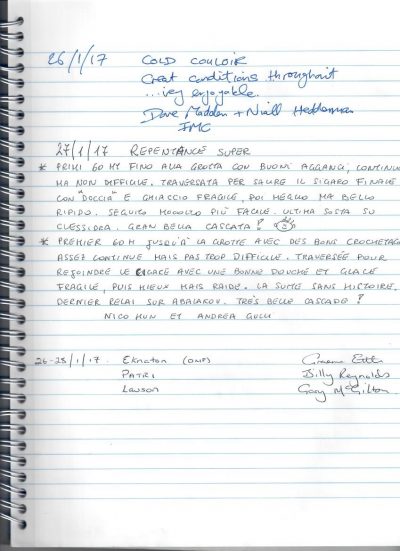 26/1/17 COLD COULOIR
Great conditions throughout
...very enjoyable.
Dave Madden + Niall Hedderman
IMC
27/1/17 REPENTANCE SUPER
* PRIMI 60 MT FINO ALLA GROTTA CON BUONI AGGANCI, CONTINUO
MA NON DIFFICILE. TRAVERSATA PER SALIRE IL SIGARO FINALE
CON "DOCCIA" E GHIACCIO FRAGILE, POI MEGLIO MA BELLO
RIPIDO. SEGUITO MOLTO PIÙ FACILE. ULTIMA SOSTA SU
CLESSIDRA. GRAN BELLA CASCATA!
* PREMIER 60 M JUSQU'À LA GROTTE AVEC DES BONS CROCHETAGE
ASSEZ CONTINUE MAIS PAS TROP DIFFICILE. TRAVERSÉE POUR
REJOINDRE LE CIGARE AVEC UNE BONNE DOUCHE ET GLACE
FRAGILE, PUIS MIEUX MAIS RAIDE. LA SUITE SANS HISTOIRE,
DERNIER RELAI SUR ABALAKOV. TRÈS BELLE CASCADE!
NICO HUN ET ANDREA GULLI
26-28/1/17. Eknaton Graeme
PATRI Billy Reynolds
Lawson Gary McGilton